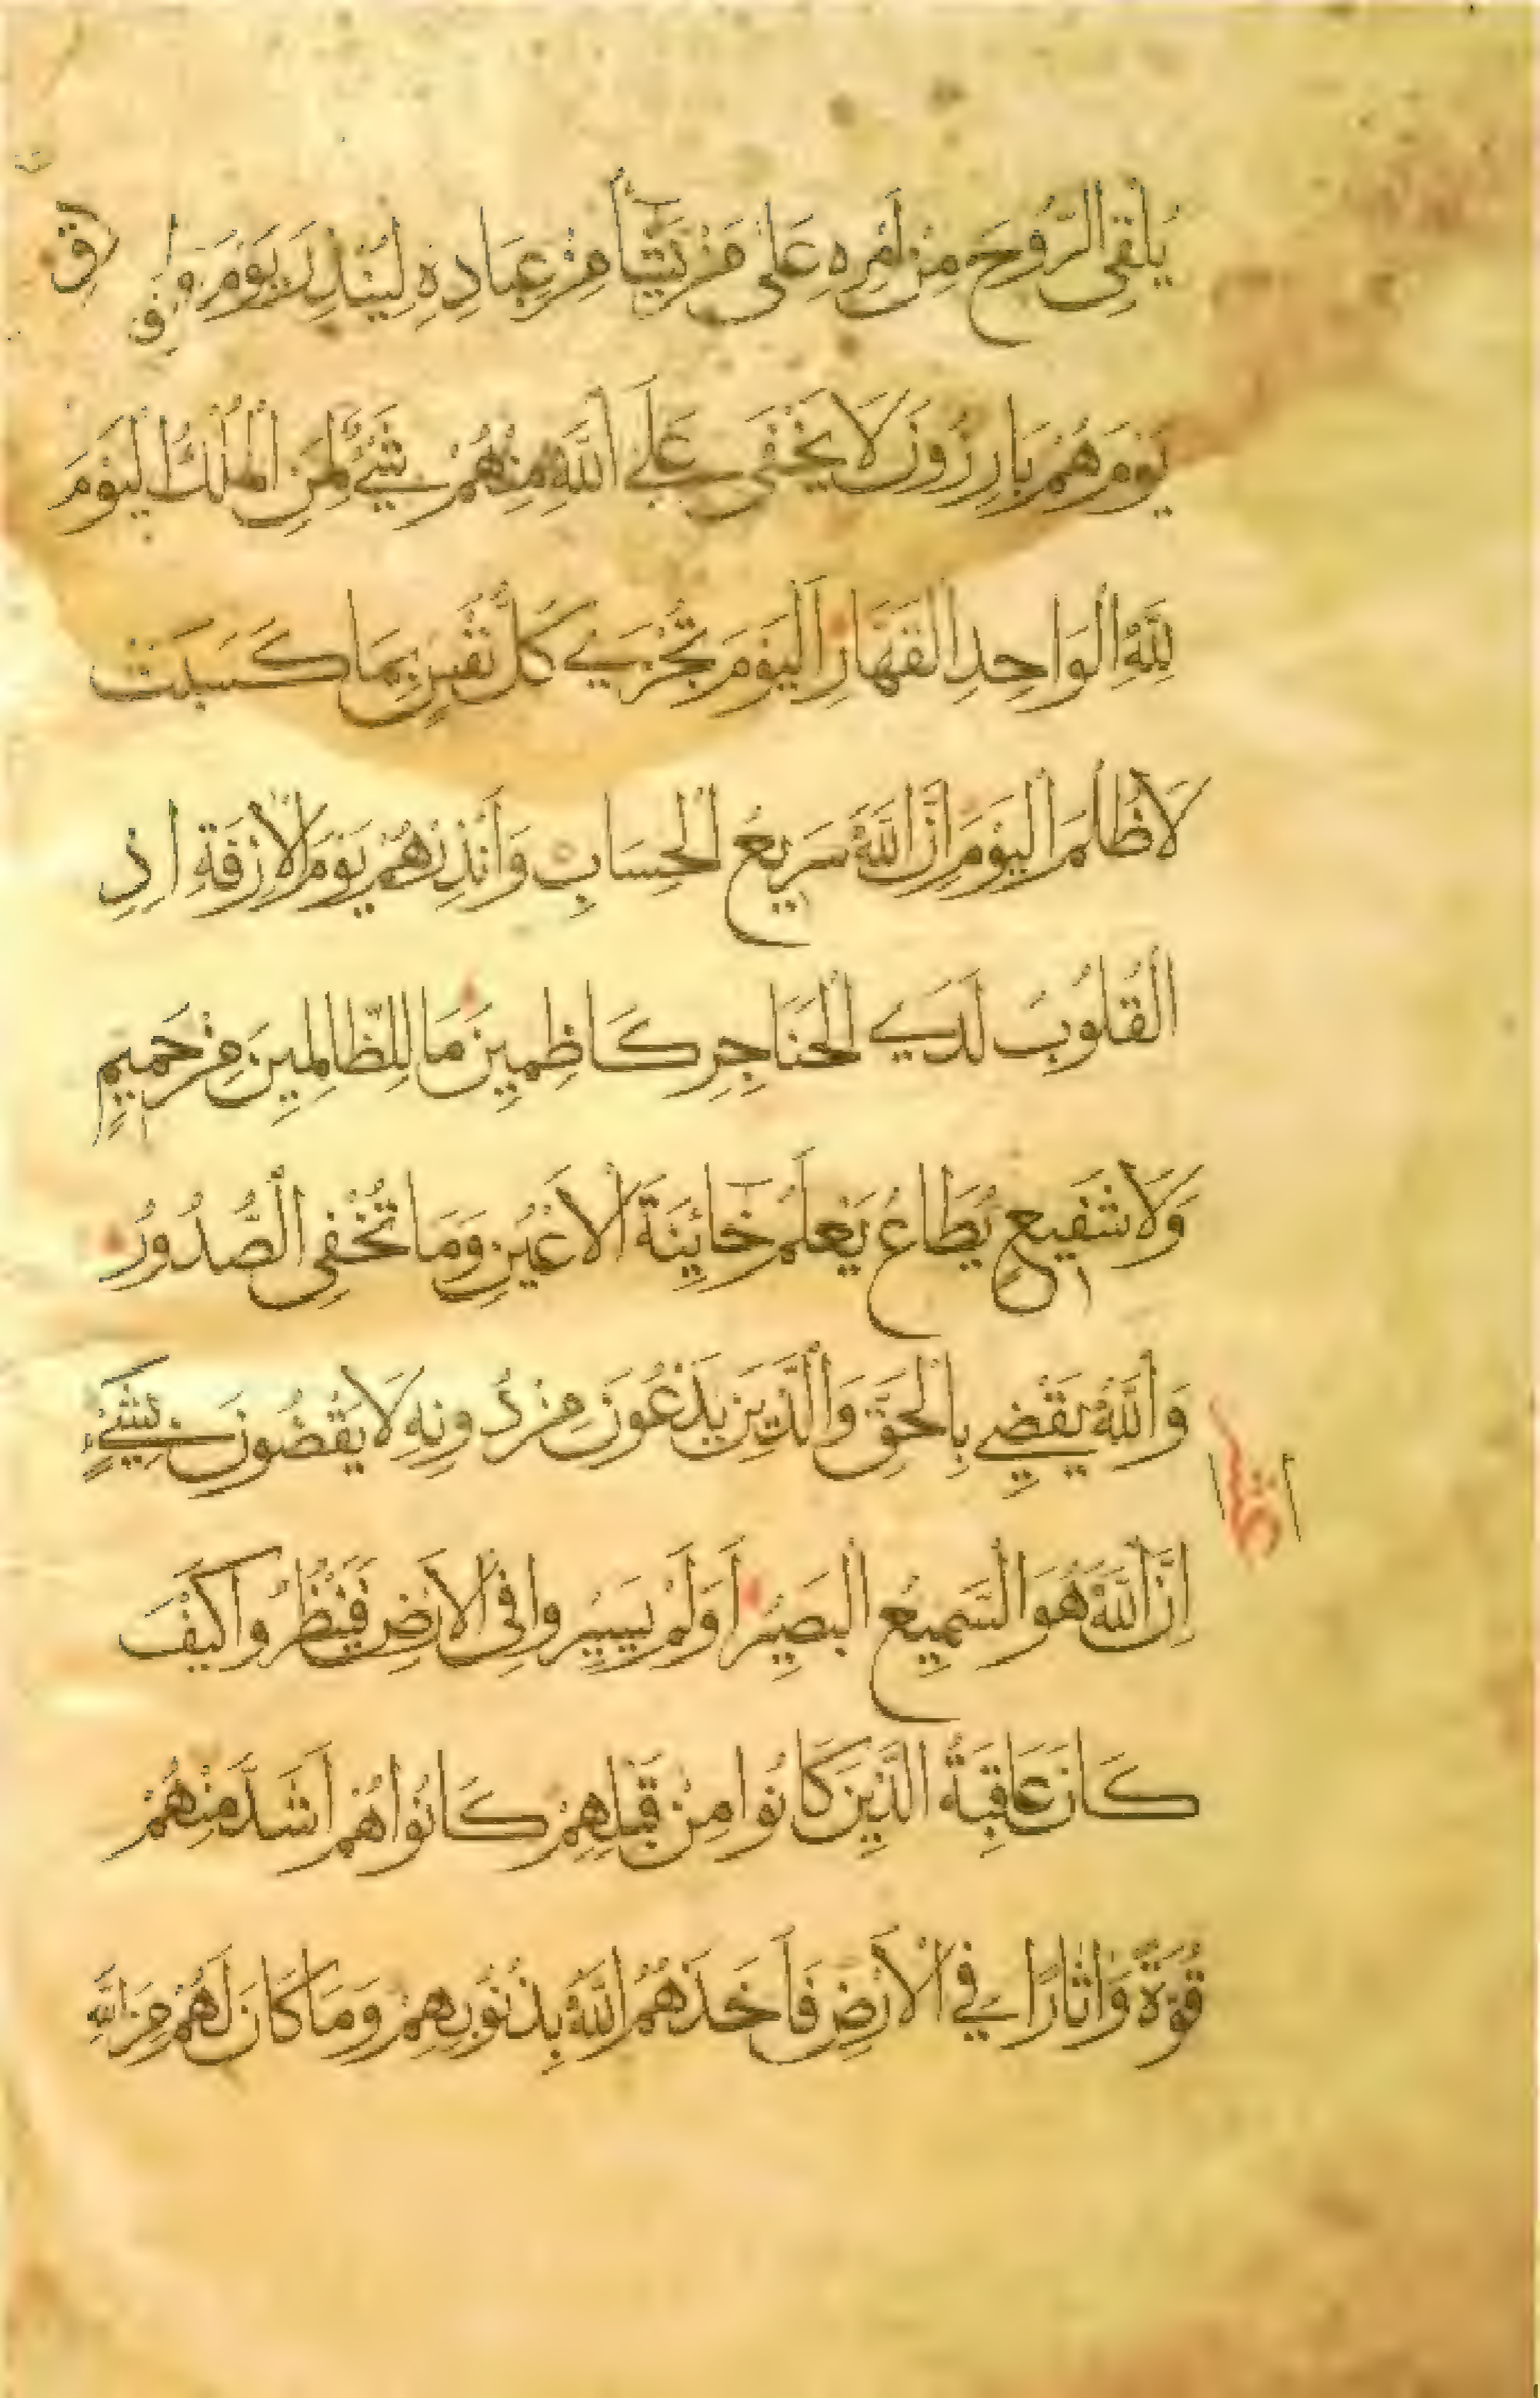 يُلْقِى الرُّوحَ مِنْ اَمْرِهِ عَلَى مَنْ يَشَآ مِنْ عِبَادِهِ لِيُنْذِرَ يَوْمَ
يَوْمَ هُمْ بَارِزُونَ لَا يَخْفَى عَلَى اللَّهِ مِنْهُمْ شَيْءٌ لِمَنِ الْمُلْكُ الْيَوْمَ
لِلَّهِ الْوَاحِدِ الْقَهَّارِ الْيَوْمَ تُجْزَي كُلُّ نَفْسٍ بِمَا كَسَبَتْ
لَا ظُلْمَ الْيَوْمَ اِنَّ اللَّهَ سَرِيعُ الْحِسَابِ وَاَنْذِرْهُمْ يَوْمَ الْاٰزِفَةِ اِذِ
الْقُلُوبُ لَدَي الْحَنَاجِرِ كَاظِمِينَ مَا لِلظَّالِمِينَ مِنْ حَمِيمٍ
وَلَا شَفِيعٍ يُطَاعُ يَعْلَمُ خَائِنَةَ الْاَعْيُنِ وَمَا تُخْفِى الصُّدُورُ
وَاللَّهُ يَقْضِي بِالْحَقِّ وَالَّذِينَ يَدْعُونَ مِنْ دُونِهِ لَا يَقْضُونَ بِشَيْءٍ
اِنَّ اللَّهَ هُوَ السَّمِيعُ الْبَصِيرُ اَوَلَمْ يَسِيرُوا فِى الْاَرْضِ فَيَنْظُرُوا كَيْفَ
كَانَ عَاقِبَةُ الَّذِينَ كَانُوا مِنْ قَبْلِهِمْ كَانُوا هُمْ اَشَدَّ مِنْهُمْ
قُوَّةً وَاٰثَارًا فِي الْاَرْضِ فَاَخَذَهُمُ اللَّهُ بِذُنُوبِهِمْ وَمَا كَانَ لَهُمْ مِنَ اللَّهِ